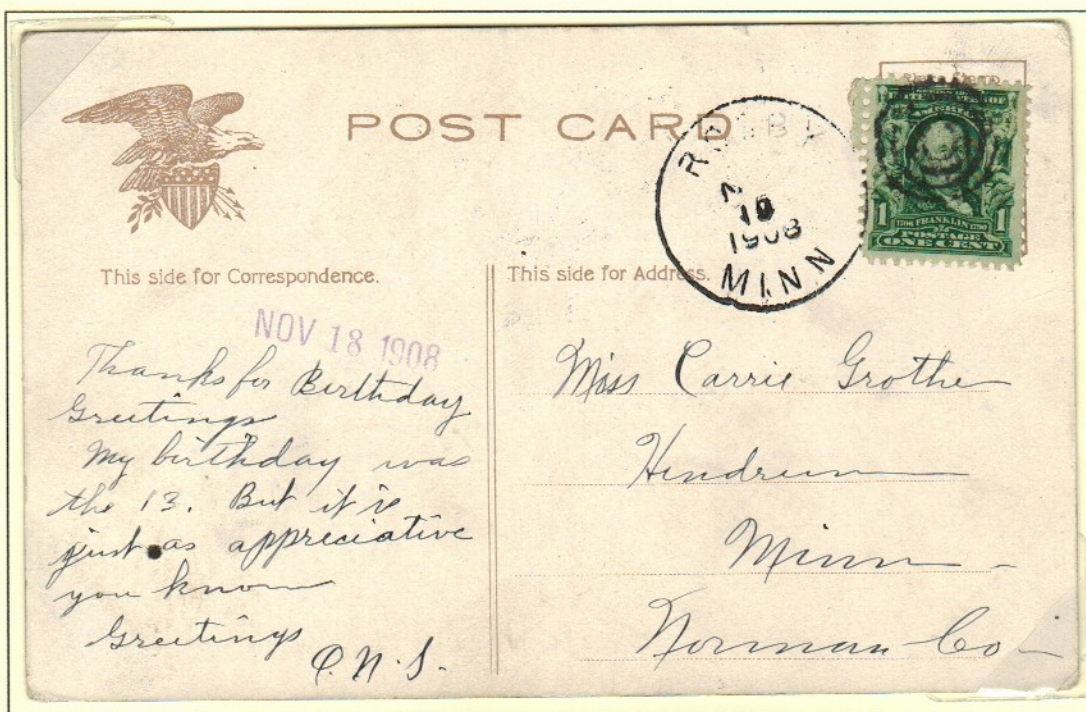 POST CARD
1
1706 FRANKLIN 1790
POSTAGE
ONE CENT
19
1908
MINN
This side for Correspondence.
This side for Address.
NOV 18 1908
Thanks for Birthday
Greetings
My birthday was
the 13. But it is
just as appreciative
you know
Greetings
Miss Carrie Grothe
Hendrum
Minn
Norman Co